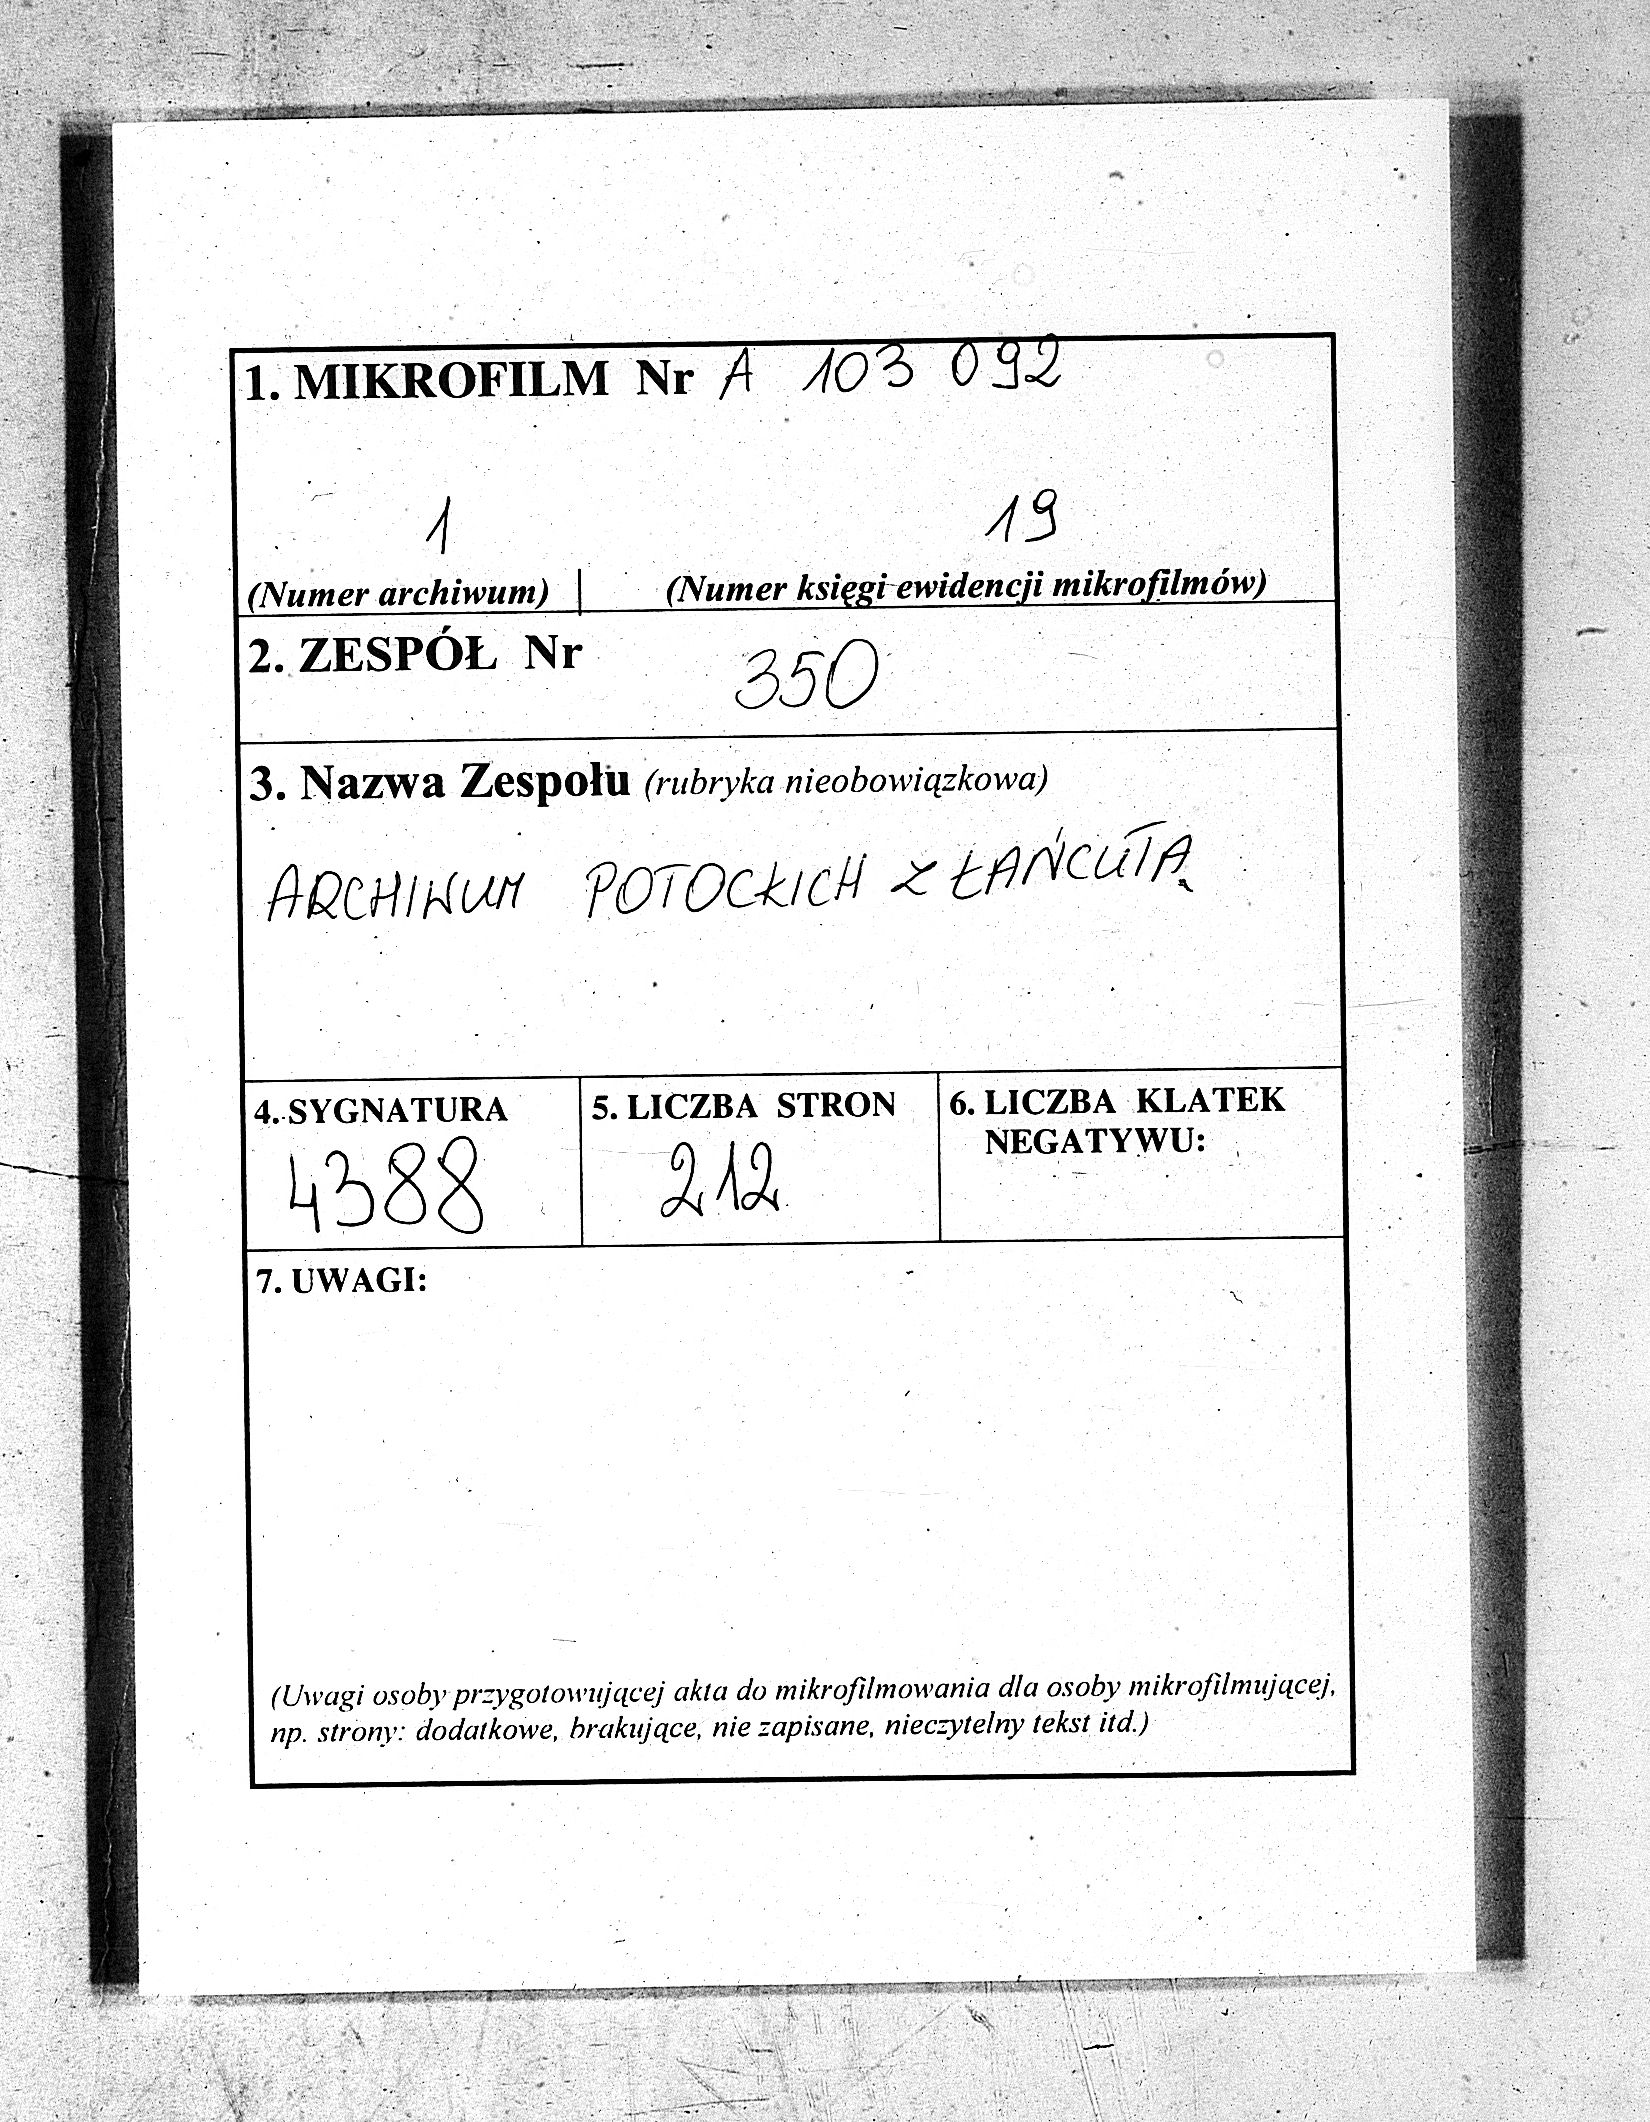 1. MIKROFILM Nr A 103 092
1 19
(Numer archiwum) | (Numer księgi ewidencji mikrofilmów)
2. ZESPÓŁ Nr 350
3. Nazwa Zespołu (rubryka nieobowiązkowa)
ARCHIWUM POTOCKICH Z ŁAŃCUTA
4. SYGNATURA
4388
5. LICZBA STRON
212
6. LICZBA KLATEK
NEGATYWU:
7. UWAGI:
(Uwagi osoby przygotowującej akta do mikrofilmowania dla osoby mikrofilmującej,
np. strony: dodatkowe, brakujące, nie zapisane, nieczytelny tekst itd.)